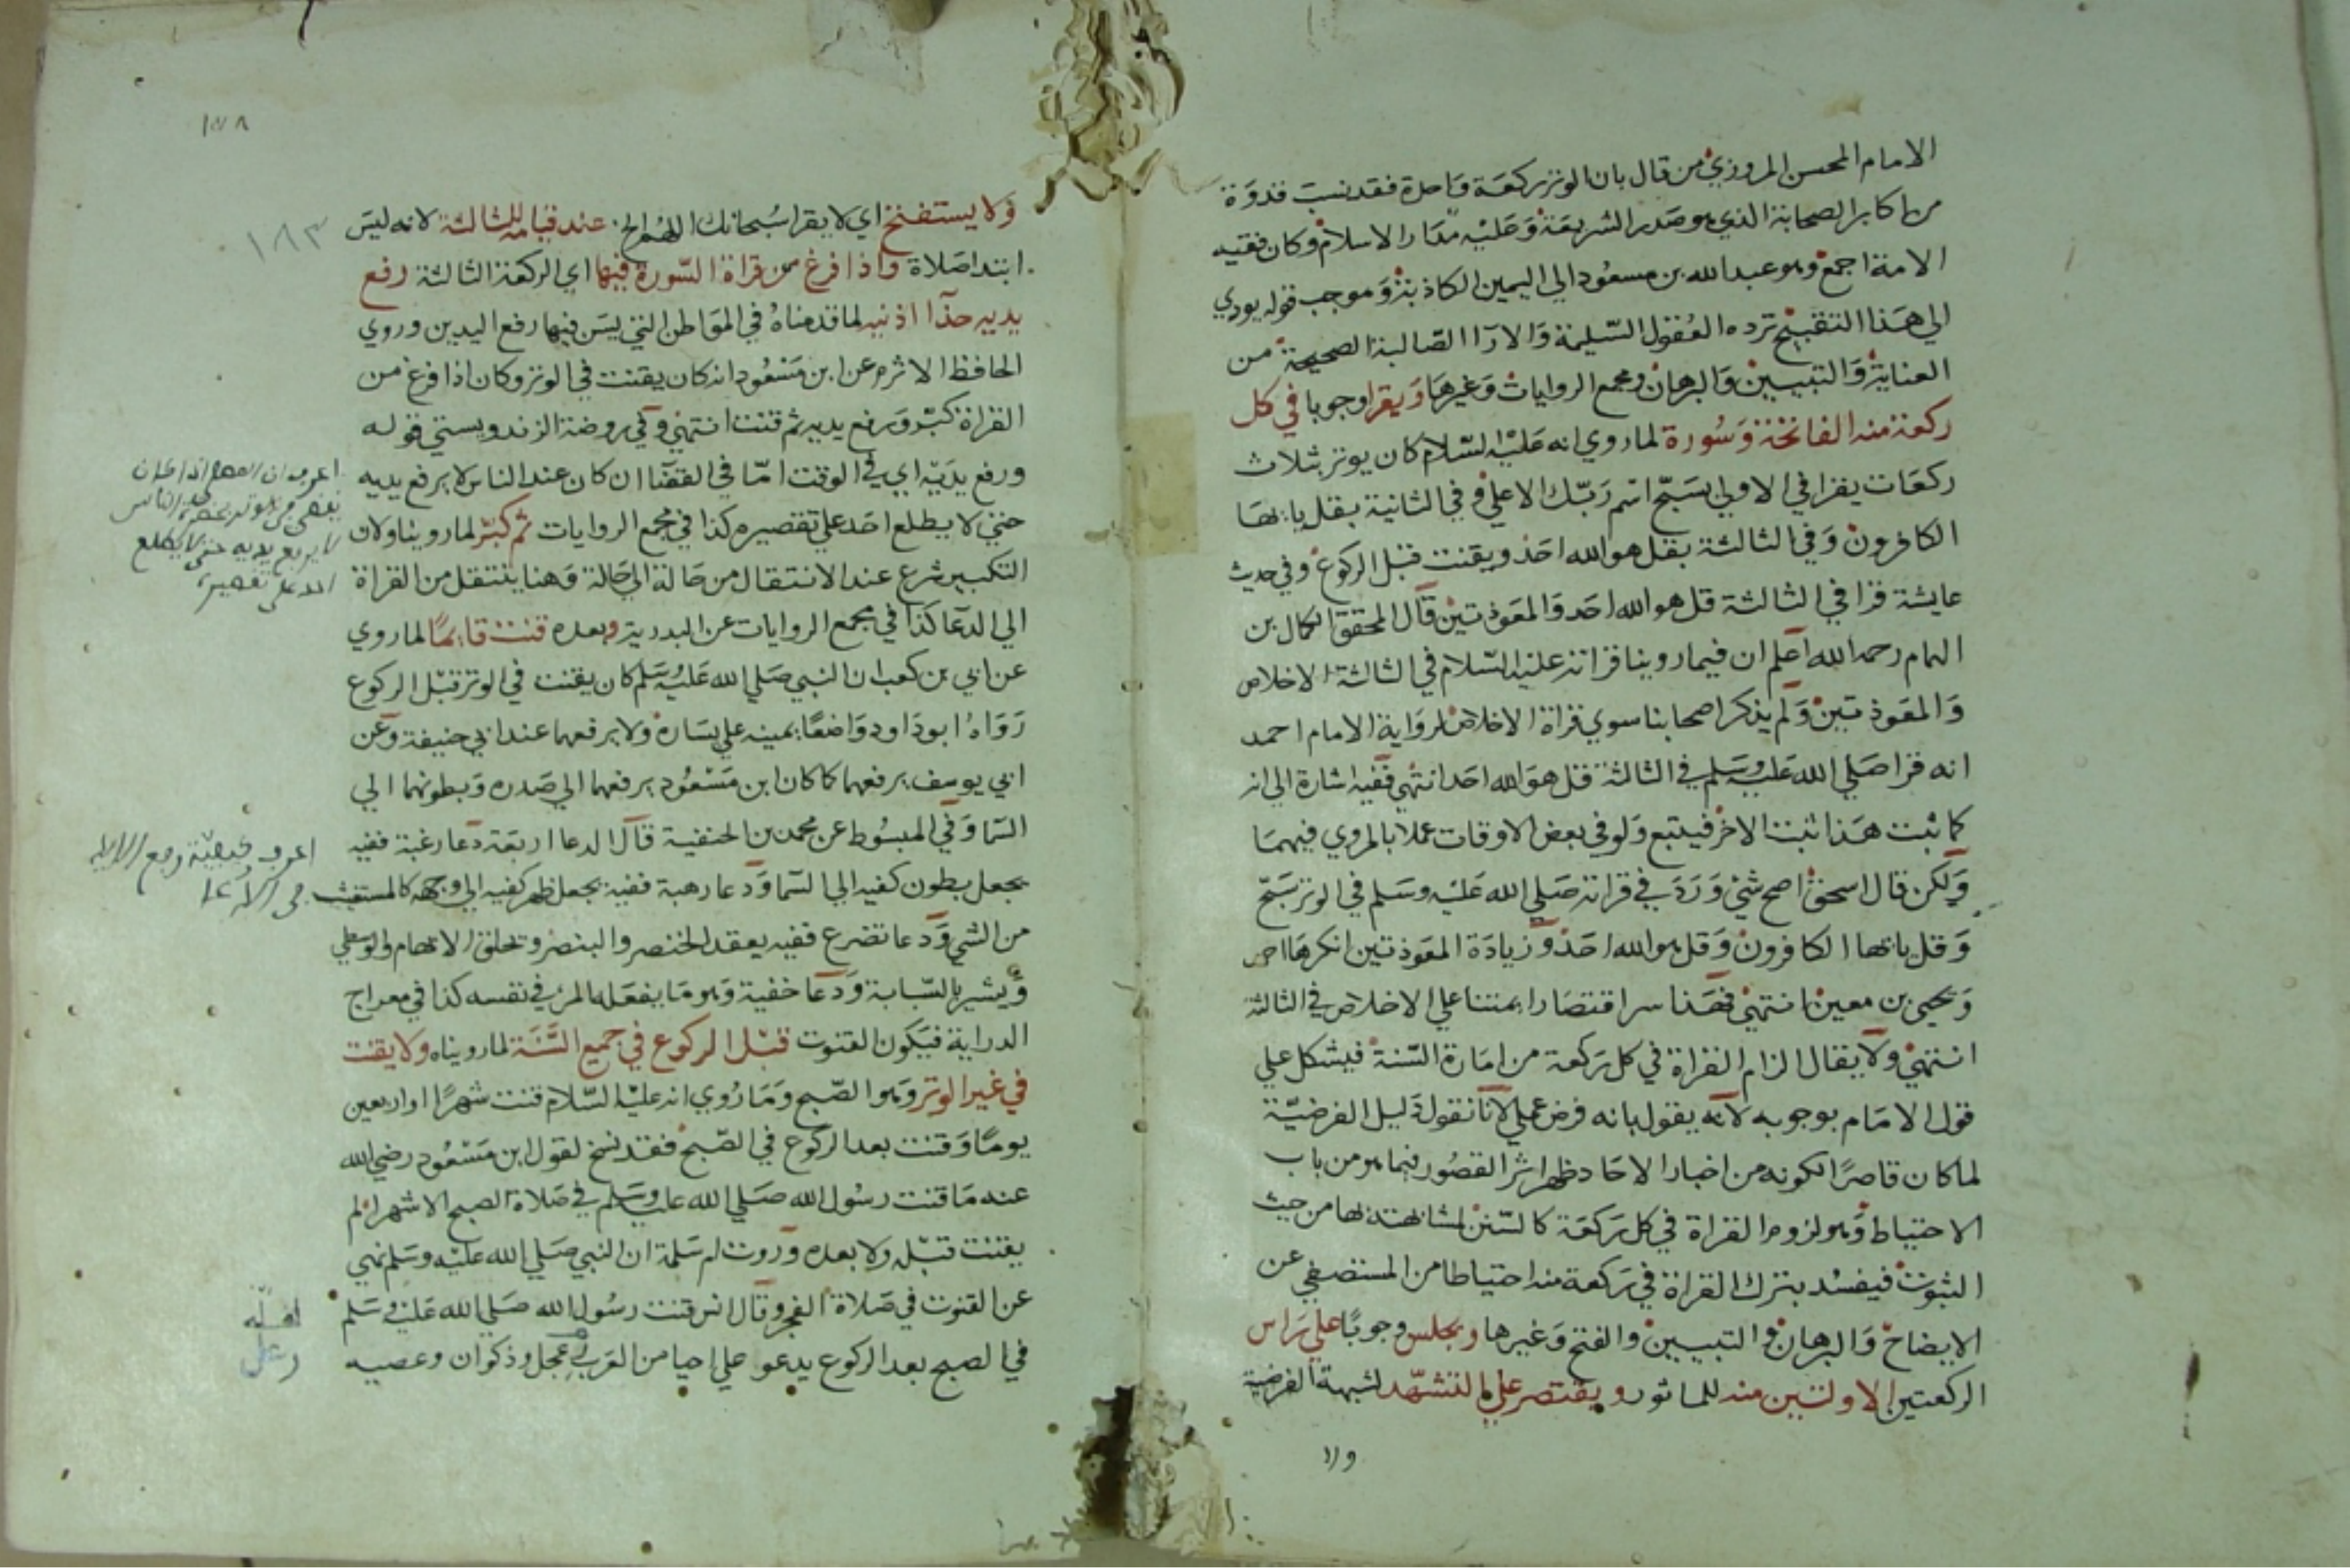 الامام المحسن المروزي من قال بان الوتر ركعة واحدة فقد نسب قدوة
من اكابر الصحابة الذي هو صدر الشريعة وعليه مدار الاسلام وكان فقيه
الامة اجمع وهو عبد الله بن مسعود الي اليمين الكاذبة وموجب قوله يودي
الي هذا التقبيح ترده العقول السليمة والارآ الصالبة الصحيحة من
العناية والتبيين والبرهان ومجمع الروايات وغيرها ويقرا وجوبا في كل
ركعة منه الفاتحة وسورة لما روي انه عليه السلام كان يوتر بثلاث
ركعات يقرا في الاولي بسبح اسم ربك الاعلي وفي الثانية بقل يايها
الكافرون وفي الثالثة بقل هو الله احد ويقنت قبل الركوع وفي حديث
عايشة قرا في الثالثة قل هو الله احد والمعوذتين قال المحقق الكمال بن
الهمام رحمه الله اعلم ان فيما روينا قراته عليه السلام في الثالثة الاخلاص
والمعوذتين ولم يذكر اصحابنا سوي قراة الاخلاص لرواية الامام احمد
انه قرا صلي الله عليه وسلم في الثالثة قل هو الله احد انتهي ففيه اشارة الي انه
كما ثبت هذا ثبت الاخر فيتبع ولو في بعض الاوقات عملا بالمروي فيهما
ولكن قال اسحق اصح شيء ورد في قراته صلي الله عليه وسلم في الوتر سبح
وقل يايها الكافرون وقل هو الله احد وزيادة المعوذتين انكرها احمد
ويحيي بن معين انتهي فهذا سر اقتصارا بمتننا علي الاخلاص في الثالثة
انتهي ولا يقال الزام القراة في كل ركعة من امارة السنة فيشكل علي
قول الامام بوجوبه لانه يقول بانه فرض عملي لانا نقول دليل الفرضية
لما كان قاصرا لكونه من اخبار الاحاد ظهر اثر القصور فيما هو من باب
الاحتياط وهو لزوم القراة في كل ركعة كالسنن لمشابهته بها من حيث
الثبوت فيفسد بترك القراة في ركعة منه احتياطا من المستصفي عن
الايضاح والبرهان والتبيين والفتح وغيرها ويجلس وجوبا علي راس
الركعتين الاولتين منه للماثور ويقتصر علي التشهد لشبهة الفرضية
ولا
ولا يستفتح اي لا يقرا سبحانك اللهم الخ عند قيامه للثالثة لانه ليس
ابتدا صلاة واذا فرغ من قراة السورة فيها اي الركعة الثالثة رفع
يديه حذآ اذنيه لما قدمناه في المواطن التي ليس فيها رفع اليدين وروي
الحافظ الاثرم عن ابن مسعود انه كان يقنت في الوتر وكان اذا فرغ من
القراة كبر ورفع يديه ثم قنت انتهي وفي روضة الزندويستي قوله
ورفع يديه اي في الوقت امّا في القضا ان كان عند الناس لا يرفع يديه
حتي لا يطلع احد علي تقصيره كذا في مجمع الروايات ثم كبر لما روينا ولان
التكبير شرع عند الانتقال من حالة الي حالة وهنا ينتقل من القراة
الي الدعا كذا في مجمع الروايات عن البدرية وبعده قنت قايما لما روي
عن ابي بن كعب ان النبي صلي الله عليه وسلم كان يقنت في الوتر قبل الركوع
رواه ابو داود واضعا يمينه علي يساره ولا يرفعهما عند ابي حنيفة وعن
ابي يوسف يرفعهما كما كان ابن مسعود يرفعهما الي صدره وبطونهما الي
السما وفي المبسوط عن محمد بن الحنفية قال الدعا اربعة دعا رغبة ففيه
يجعل بطون كفيه الي السما ودعا رهبة ففيه يجعل ظهر كفيه الي وجهه كالمستغيث
من الشي ودعا تضرع ففيه يعقد الخنصر والبنصر وتحلق الابهام والوسطي
ويشير بالسبابة ودعا خفية وهو ما يفعله المرء في نفسه كذا في معراج
الدراية فيكون القنوت قبل الركوع في جميع السنة لما رويناه ولا يقنت
في غير الوتر وهو الصبح وما روي انه عليه السلام قنت شهرا او اربعين
يوما وقنت بعد الركوع في الصبح فقد نسخ لقول ابن مسعود رضي الله
عنه ما قنت رسول الله صلي الله عليه وسلم في صلاة الصبح الا شهرا ثم لم
يقنت قبله ولا بعده وروت ام سلمة ان النبي صلي الله عليه وسلم نهي
عن القنوت في صلاة الفجر وقال انس قنت رسول الله صلي الله عليه وسلم
في الصبح بعد الركوع يدعو علي احيا من العرب عجل وذكوان وعصيه
١٨٣
اعرف ان المصلي اذا كان
يقضي في الوتر بحضرة الناس
لا يرفع يديه حتي لا يطلع
احد علي تقصيره
اعرف كيفية رفع الايدي
في الادعا
لعله
رعل